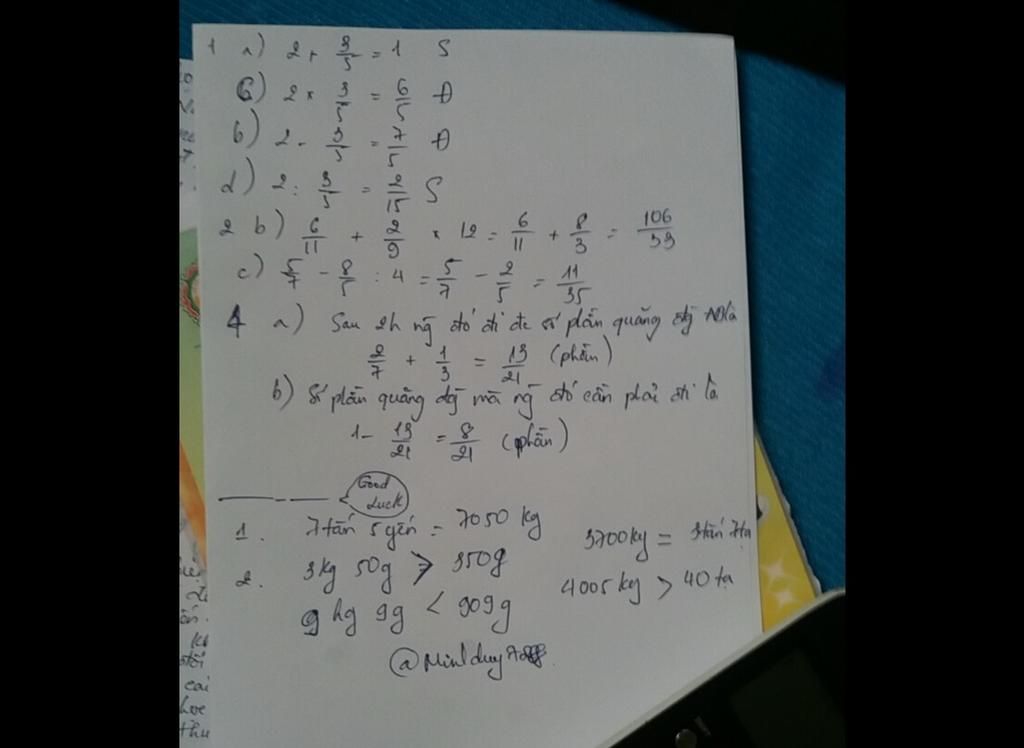 1 a) 2 + 3/5 = 1 S
c) 2 × 3/5 = 6/5 Đ
b) 2 - 3/5 = 7/5 Đ
d) 2 : 3/5 = 2/15 S
2 b) 6/11 + 2/9 × 12 = 6/11 + 8/3 = 106/33
c) 5/7 - 8/5 : 4 = 5/7 - 2/5 = 11/35
4 a) Sau 2h ng đó đi đc số phần quãng đg là
2/7 + 1/3 = 13/21 (phần)
b) Số phần quãng đg mà ng đó cần phải đi là
1 - 13/21 = 8/21 (phần)
Good
Luck
1. 7 tấn 5 yến = 7050 kg 3700kg = 3 tấn 7 tạ
2. 3kg 50g > 350g 4005 kg > 40 tạ
9 hg 9g < 909g